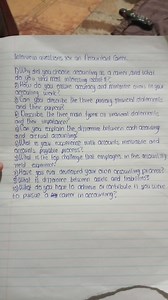 Interview questions for an Accountant Guest
1) Why did you choose accounting as a career, and what
do you find most interesting about it?
2) How do you ensure accuracy and attention even in your
accounting work?
3) Can you describe the three primary financial statements
and their purpose?
4) Describe the three main types of financial statements
and their importance?
5) Can you explain the difference between cash accounting
and accrual accounting?
6) What is your experience with accounts receivable and
accounts payable process?
7) What is the top challenge that employees in the accounting
field experience?
8) Have you ever developed your own accounting process?
9) What is difference between assets and liabilities?
10) What do you have to achieve or contribute if you want
to pursue a career in accounting?